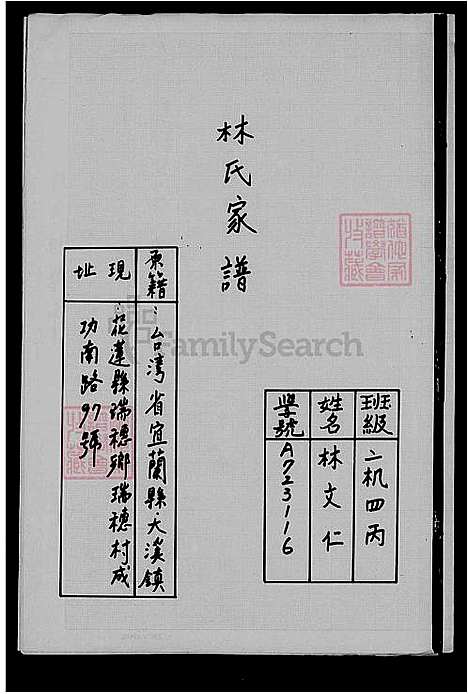 林氏家譜
班級 二机四丙
姓名 林文仁
學號 A723116
原籍：台湾省宜蘭縣大溪鎮
現址：花蓮縣瑞穗鄉瑞穗村成
功南路97號
FamilySearch